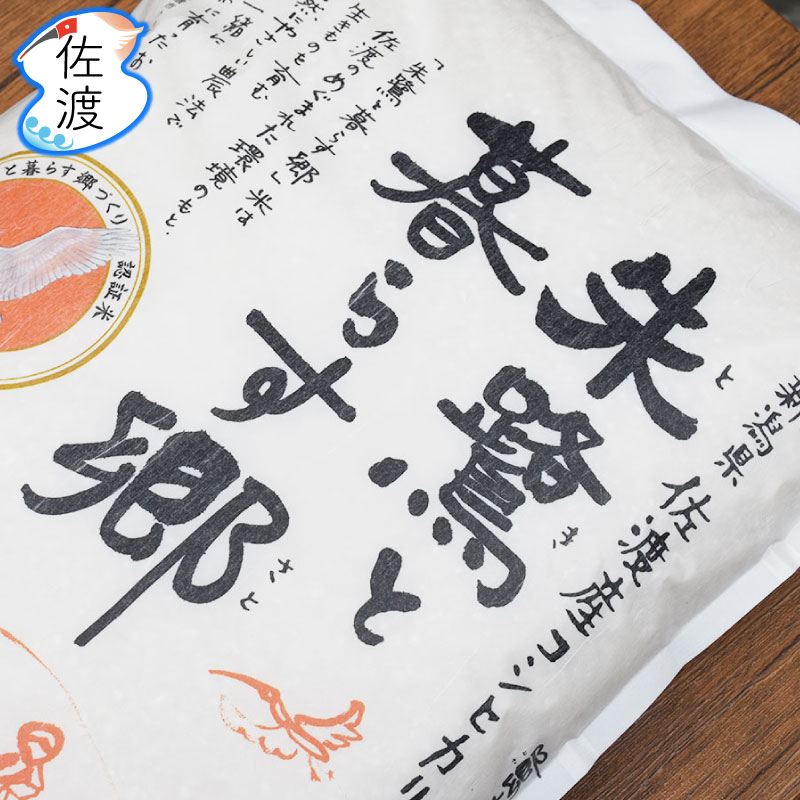 佐渡
新潟県佐渡産コシヒカリ
朱鷺と
とき
暮らす
郷
さと
「朱鷺と暮らす郷」米は
佐渡のめぐまれた環境のもと、
生きものを育む
然にやさしい農法で
一緒に
に育
ったお
と暮らす郷づくり
認証米